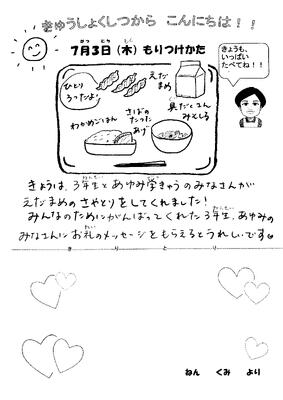 きゅうしょくしつから こんにちは！！
7月3日（木）もりつけかた
きょうも、
いっぱい
たべてね！！
ひとり
3つだよ！
えだ
まめ
わかめごはん
さばの
たつた
あげ
具だくさん
みそしる
きょうは、3年生とあゆみ学きゅうのみなさんが
えだまめのさやとりをしてくれました！
みんなのためにがんばってくれた3年生、あゆみの
みなさんにお礼のメッセージをもらえるとうれしいです
きりとり
ねん くみ より